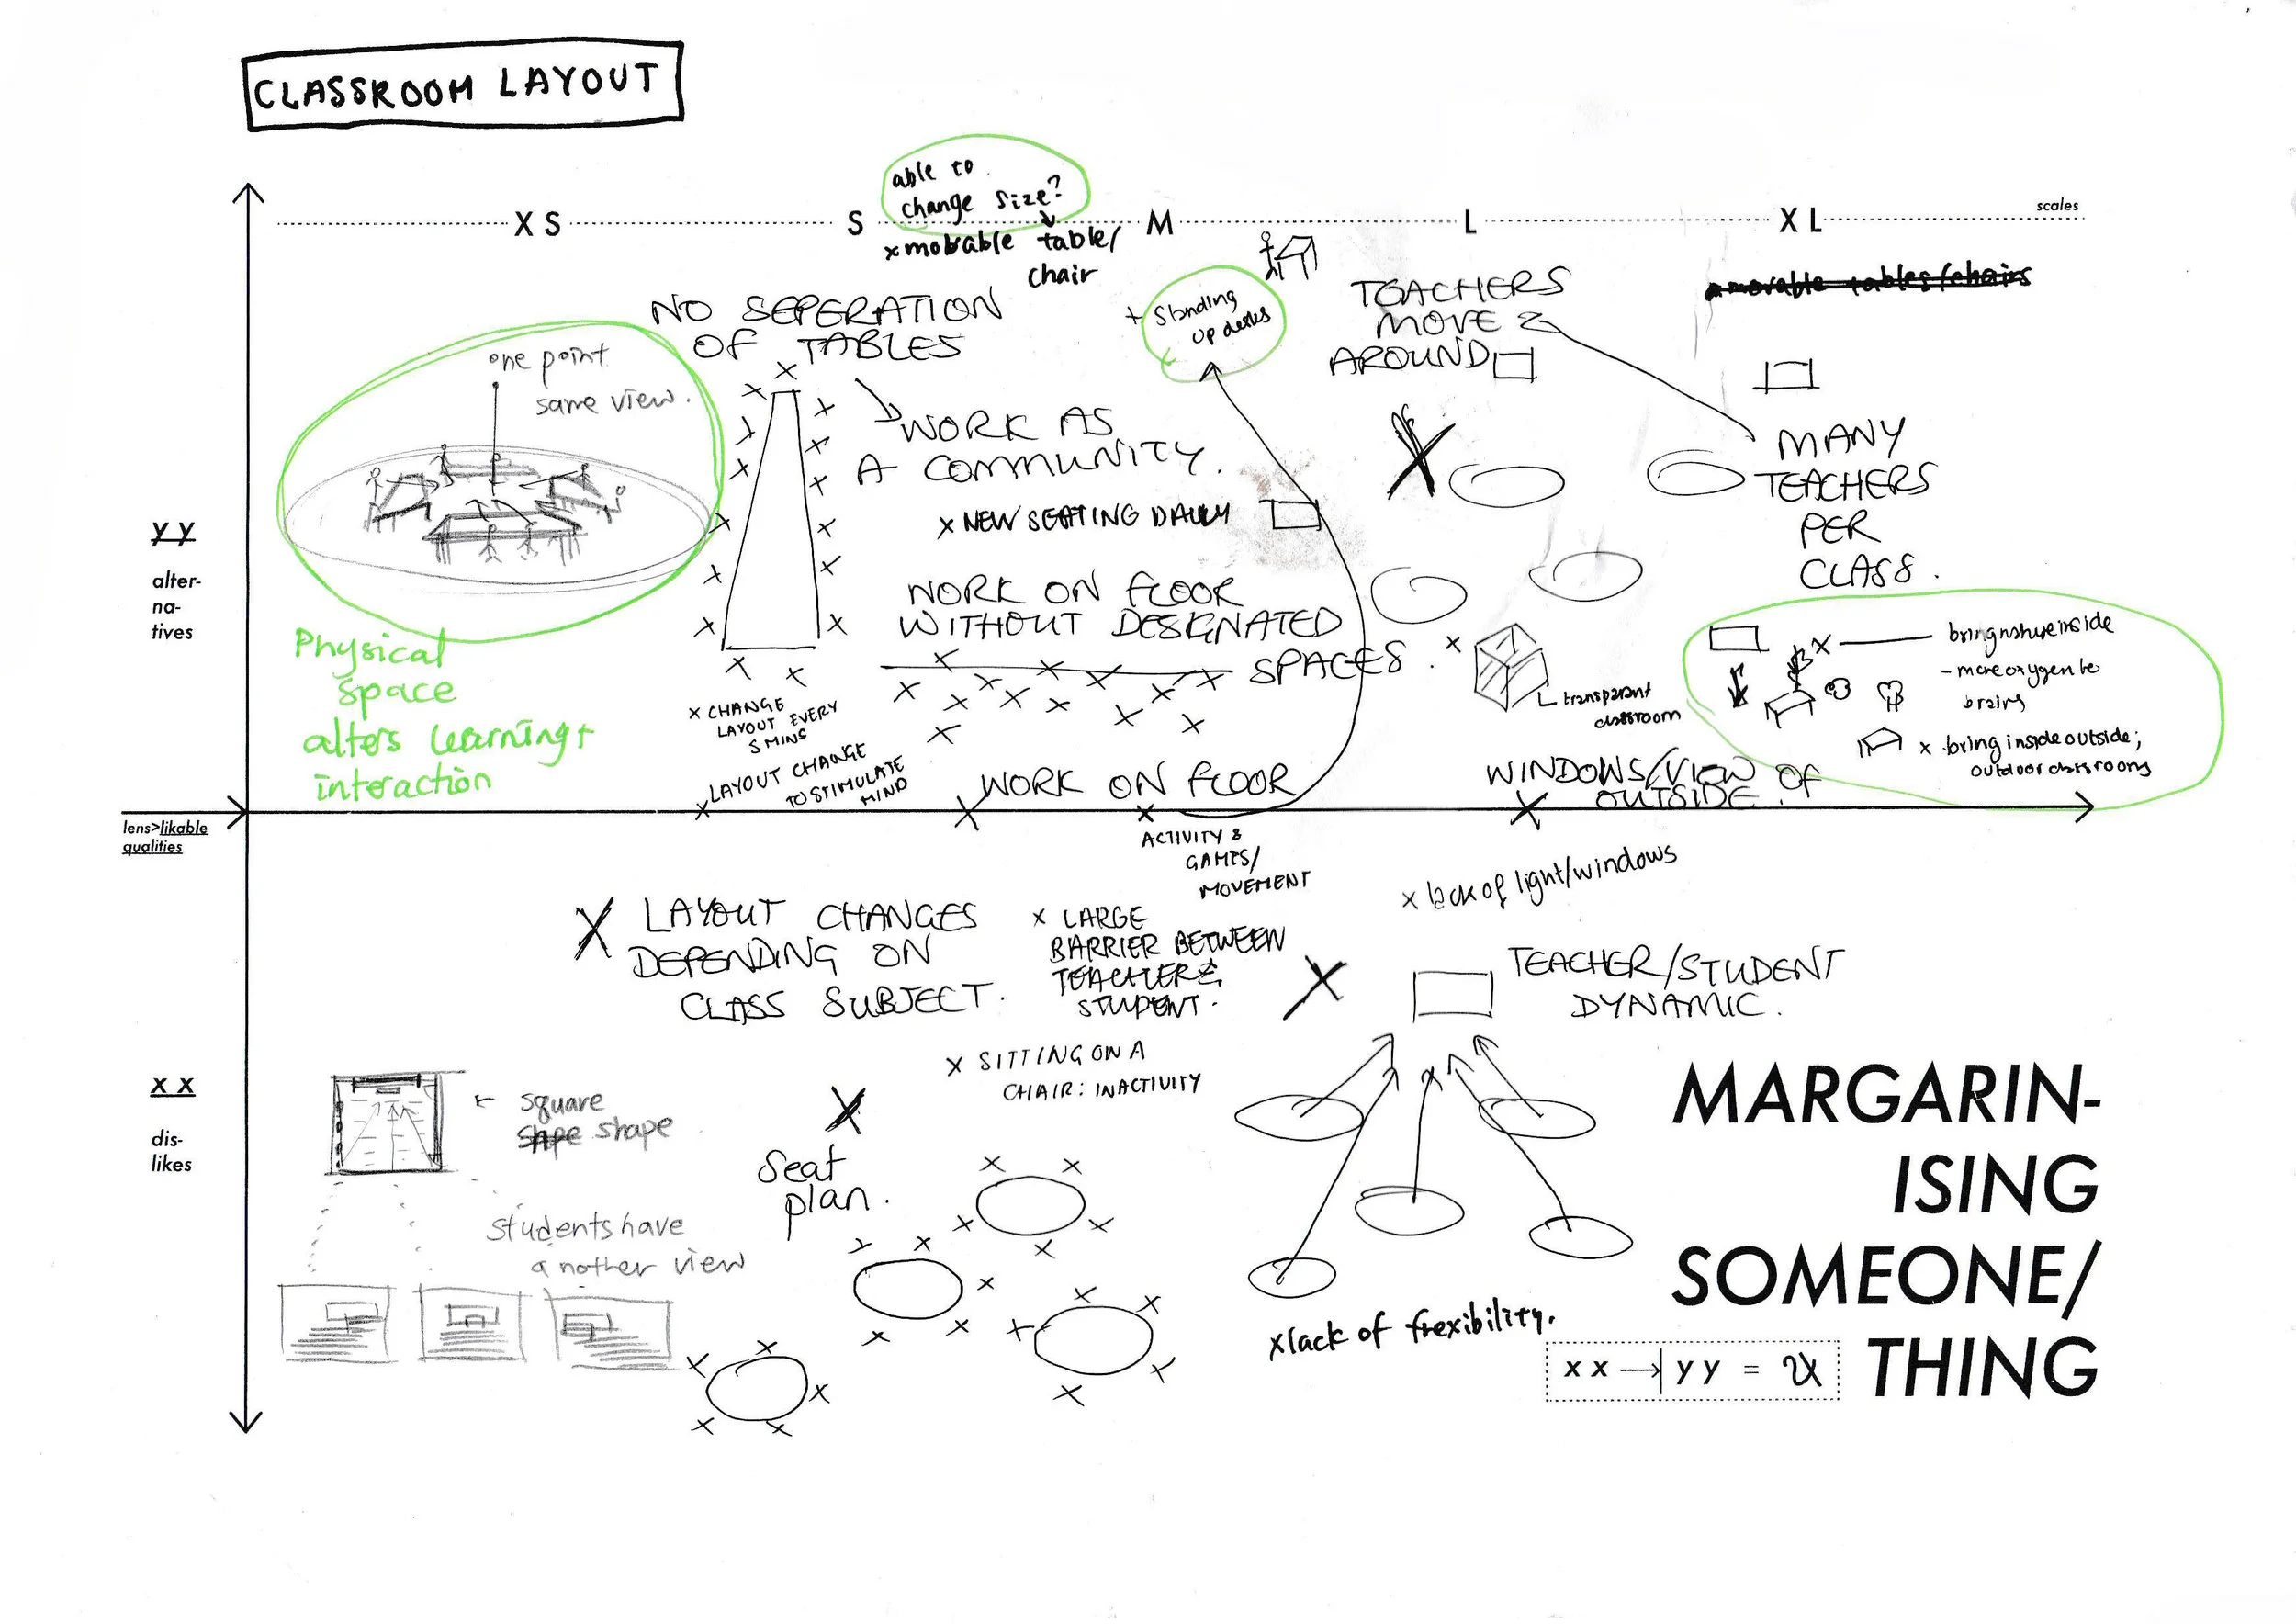 CLASSROOM LAYOUT
able to
change size?
XS
S
M
L
XL
scales
x movable table/
chair
NO SEPERATION
OF TABLES
+ Standing
up desks
TEACHERS
MOVE
AROUND
movable tables/chairs
one point
same view.
WORK AS
A COMMUNITY.
MANY
TEACHERS
PER
CLASS.
x NEW SEATING DAILY
yy
alter-
na-
tives
WORK ON FLOOR
WITHOUT DESIGNATED
SPACES.
Physical
space
alters learning +
interaction
x CHANGE
LAYOUT EVERY
5 MINS
LAYOUT CHANGE
TO STIMULATE
MIND
x
transparent
classroom
x
bring nature inside
- more oxygen to
brains
x bring inside outside;
outdoor classrooms
WORK ON FLOOR
WINDOWS/VIEW OF
OUTSIDE.
lens>likable
qualities
ACTIVITY &
GAMES/
MOVEMENT
x lack of light/windows
X LAYOUT CHANGES
DEPENDING ON
CLASS SUBJECT.
x LARGE
BARRIER BETWEEN
TEACHER &
STUDENT.
X
TEACHER/STUDENT
DYNAMIC.
x SITTING ON A
CHAIR: INACTIVITY
xx
dis-
likes
square
shape
students have
another view
X
Seat
plan.
x lack of frexibility.
MARGARIN-
ISING
SOMEONE/
THING
xx → yy =